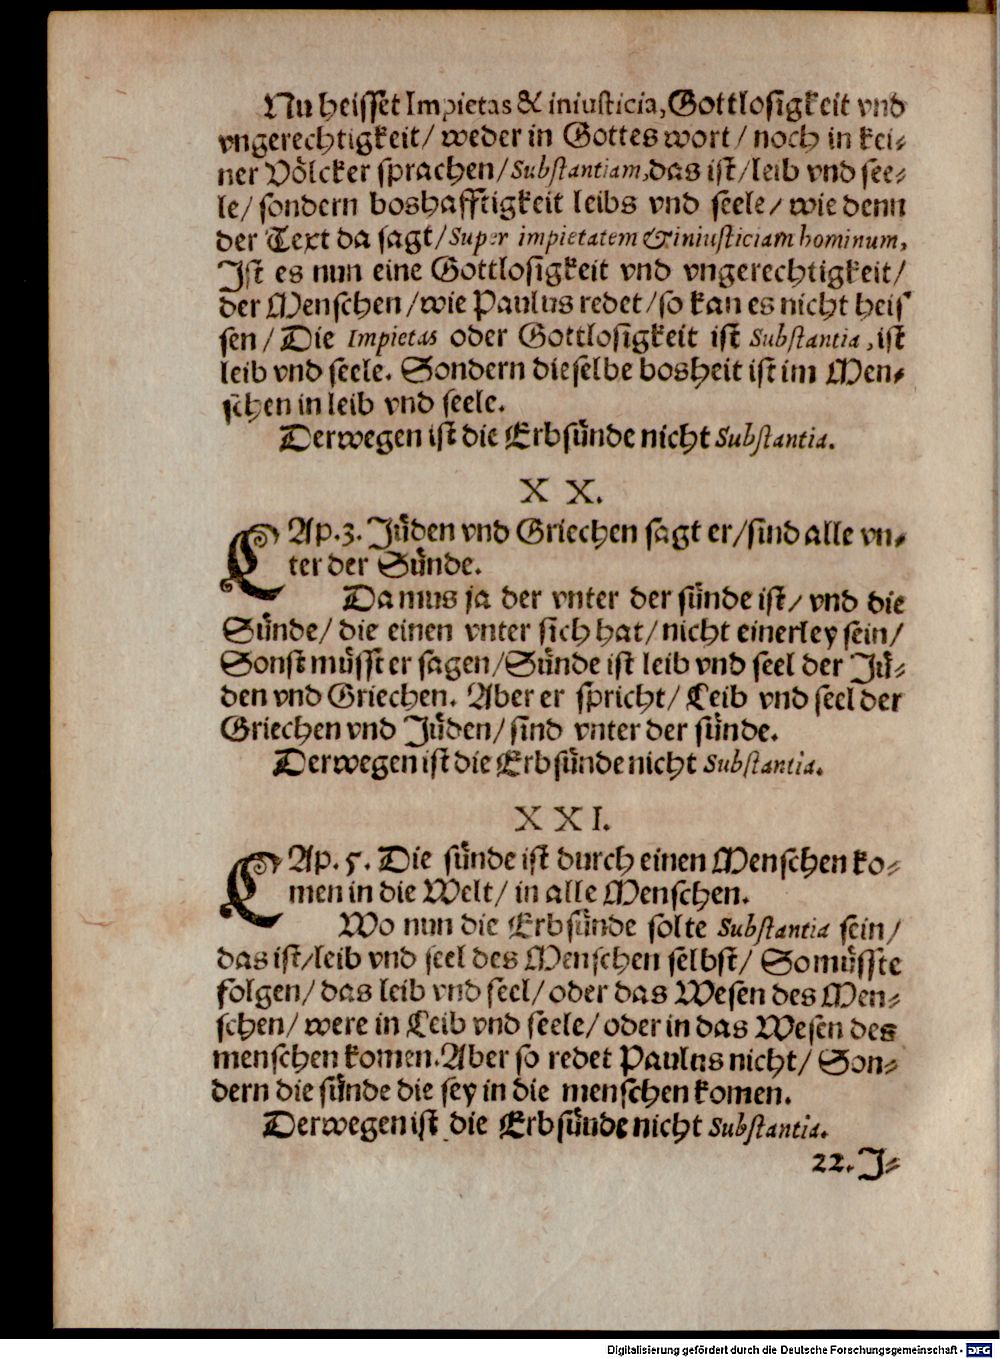 Nu heisset Impietas & iniusticia, Gottlosigkeit vnd
vngerechtigkeit/ weder in Gottes wort/ noch in kei-
ner Völcker sprachen/ Substantiam, das ist/ leib vnd see-
le/ sondern boshafftigkeit leibs vnd seele/ wie denn
der Text da sagt/ Super impietatem & iniusticiam hominum,
Ist es nun eine Gottlosigkeit vnd vngerechtigkeit/
der Menschen/ wie Paulus redet/ so kan es nicht heis
sen/ Die Impietas oder Gottlosigkeit ist Substantia, ist
leib vnd seele. Sondern dieselbe bosheit ist im Men-
schen in leib vnd seele.
Derwegen ist die Erbsünde nicht Substantia.
X X.
CAp. 3. Jüden vnd Griechen sagt er/ sind alle vn-
ter der Sünde.
Da mus ja der vnter der sünde ist/ vnd die
Sünde/ die einen vnter sich hat/ nicht einerley sein/
Sonst müsst er sagen/ Sünde ist leib vnd seel der Jü-
den vnd Griechen. Aber er spricht/ Leib vnd seel der
Griechen vnd Jüden/ sind vnter der sünde.
Derwegen ist die Erbsünde nicht Substantia.
X X I.
CAp. 5. Die sünde ist durch einen Menschen ko-
men in die Welt/ in alle Menschen.
Wo nun die Erbsünde solte Substantia sein/
das ist/ leib vnd seel des Menschen selbst/ So müsste
folgen/ das leib vnd seel/ oder das Wesen des Men-
schen/ were in Leib vnd seele/ oder in das Wesen des
menschen komen. Aber so redet Paulus nicht/ Son-
dern die sünde die sey in die menschen komen.
Derwegen ist die Erbsünde nicht Substantia.
22. J-
Digitalisierung gefördert durch die Deutsche Forschungsgemeinschaft - DFG